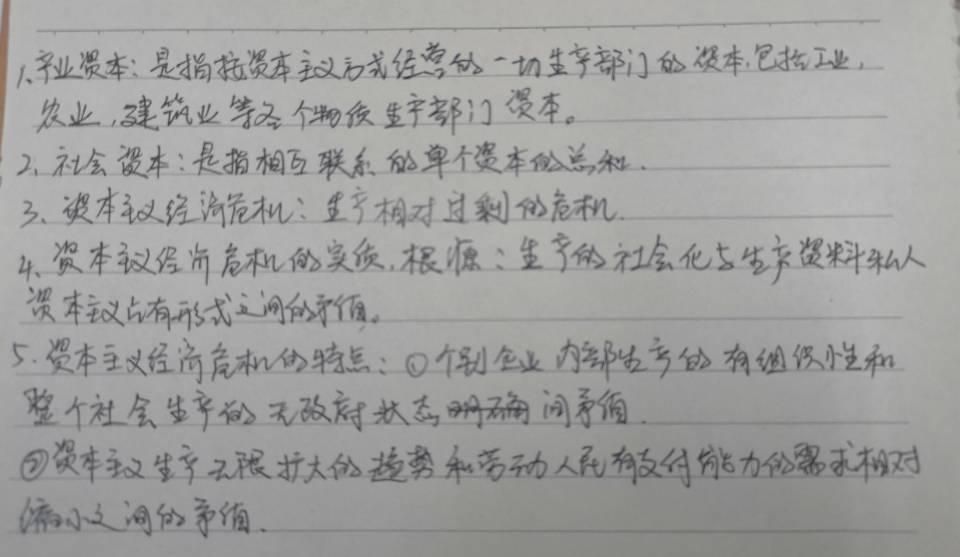 1、产业资本：是指按资本主义方式经营的一切生产部门的资本，包括工业，
农业，建筑业等各个物质生产部门资本。
2、社会资本：是指相互联系的单个资本的总和．
3、资本主义经济危机：生产相对过剩的危机．
4、资本主义经济危机的实质，根源：生产的社会化与生产资料私人
资本主义占有形式之间的矛盾。
5、资本主义经济危机的特点：①个别企业内部生产的有组织性和
整个社会生产的无政府状态间矛盾．
②资本主义生产无限扩大的趋势和劳动人民有支付能力的需求相对
缩小之间的矛盾．